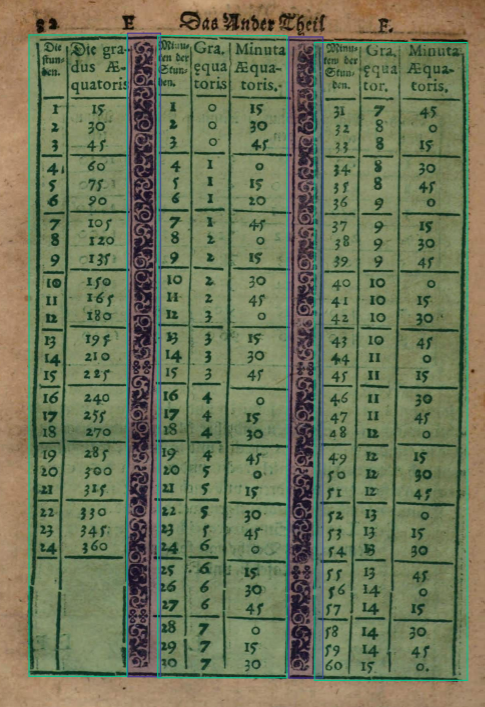 E Das Ander Theil F.
Die Die gra- Minu- Gra. Minuta Minu- Gra. Minuta
stun- dus Æ- ten der ęqua Æqua- ten der ęqua Æqua-
den. quatoris Stun- toris toris. Stun- tor. toris.
den. den.
1 15 1 0 15 31 7 45
2 30 2 0 30 32 8 0
3 45 3 0 45 33 8 15
4 60 4 1 0 34 8 30
5 75 5 1 15 35 8 45
6 90 6 1 20 36 9 0
7 105 7 1 45 37 9 15
8 120 8 2 0 38 9 30
9 135 9 2 15 39 9 45
10 150 10 2 30 40 10 0
11 165 11 2 45 41 10 15
12 180 12 3 0 42 10 30
13 195 13 3 15 43 10 45
14 210 14 3 30 44 11 0
15 225 15 3 45 45 11 15
16 240 16 4 0 46 11 30
17 255 17 4 15 47 11 45
18 270 18 4 30 48 12 0
19 285 19 4 45 49 12 15
20 300 20 5 0 50 12 30
21 315 21 5 15 51 12 45
22 330 22 5 30 52 13 0
23 345 23 5 45 53 13 15
24 360 24 6 0 54 13 30
25 6 15 55 13 45
26 6 30 56 14 0
27 6 45 57 14 15
28 7 0 58 14 30
29 7 15 59 14 45
30 7 30 60 15 0.